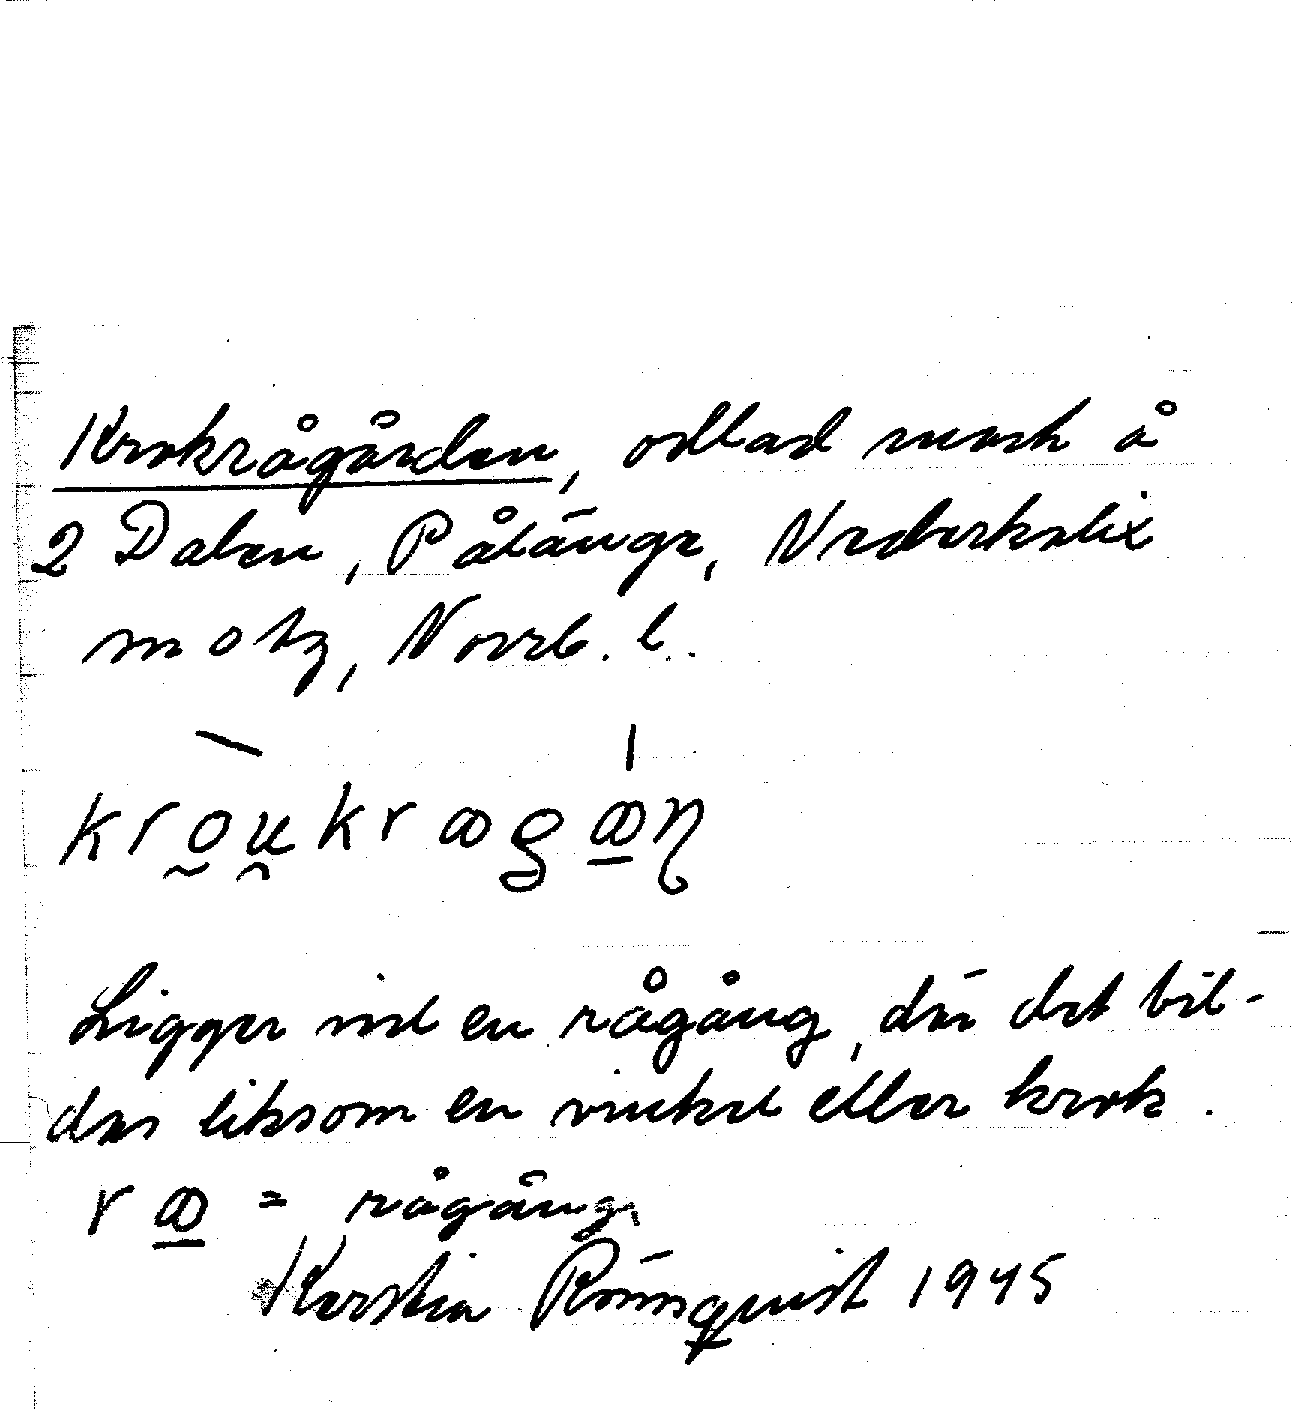 Krokrågården, odlad mark å
2 Dalen, Pålänge, Nederkalix
sn o tg, Norrb. l.
krou̯krꝏgꝏ̱ɳ
Ligger vid en rågång, där det bil-
das liksom en vinkel eller krok.
rꝏ̱ = rågång
Kerstin Rönnquist 1945